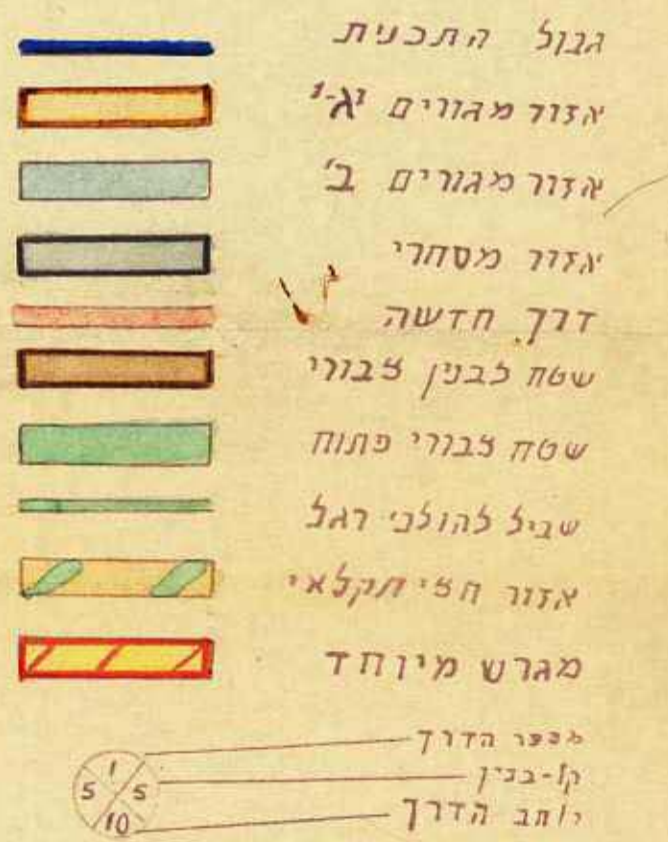 גבול התכנית
אזור מגורים א-1'
אזור מגורים ב'
אזור מסחרי
דרך חדשה
שטח לבנין צבורי
שטח צבורי פתוח
שביל להולכי רגל
אזור חצי חקלאי
מגרש מיוחד
מספר הדרך
קו-בנין
רוחב הדרך
1
5 5
10